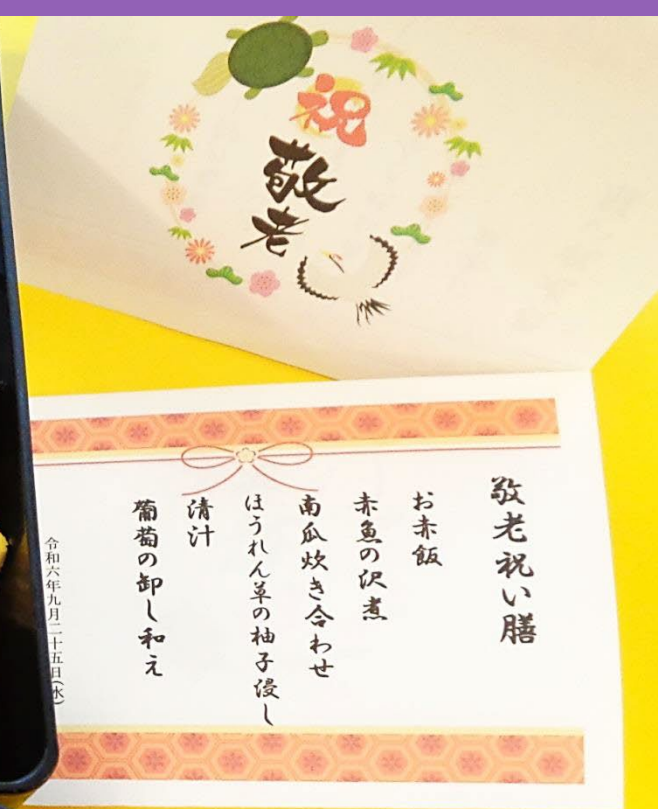 祝
敬老
敬老祝い膳
お赤飯
赤魚の沢煮
南瓜炊き合わせ
ほうれん草の柚子浸し
清汁
葡萄の卸し和え
令和六年九月二十五日(水)